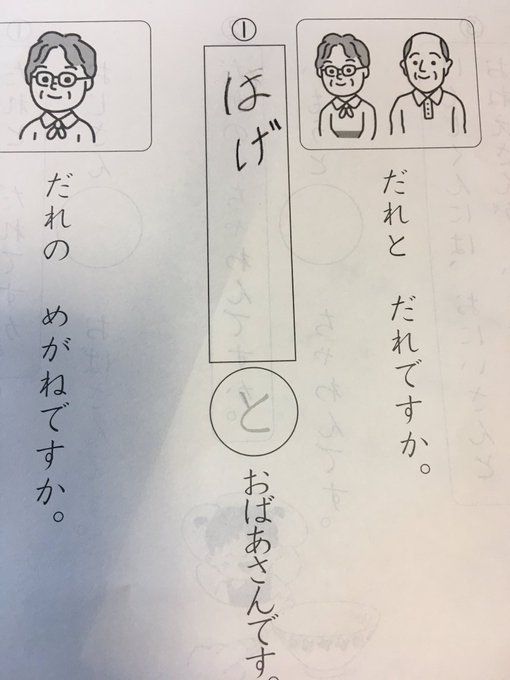 だれと だれですか。
①
はげ
と
おばあさんです。
だれの めがねですか。